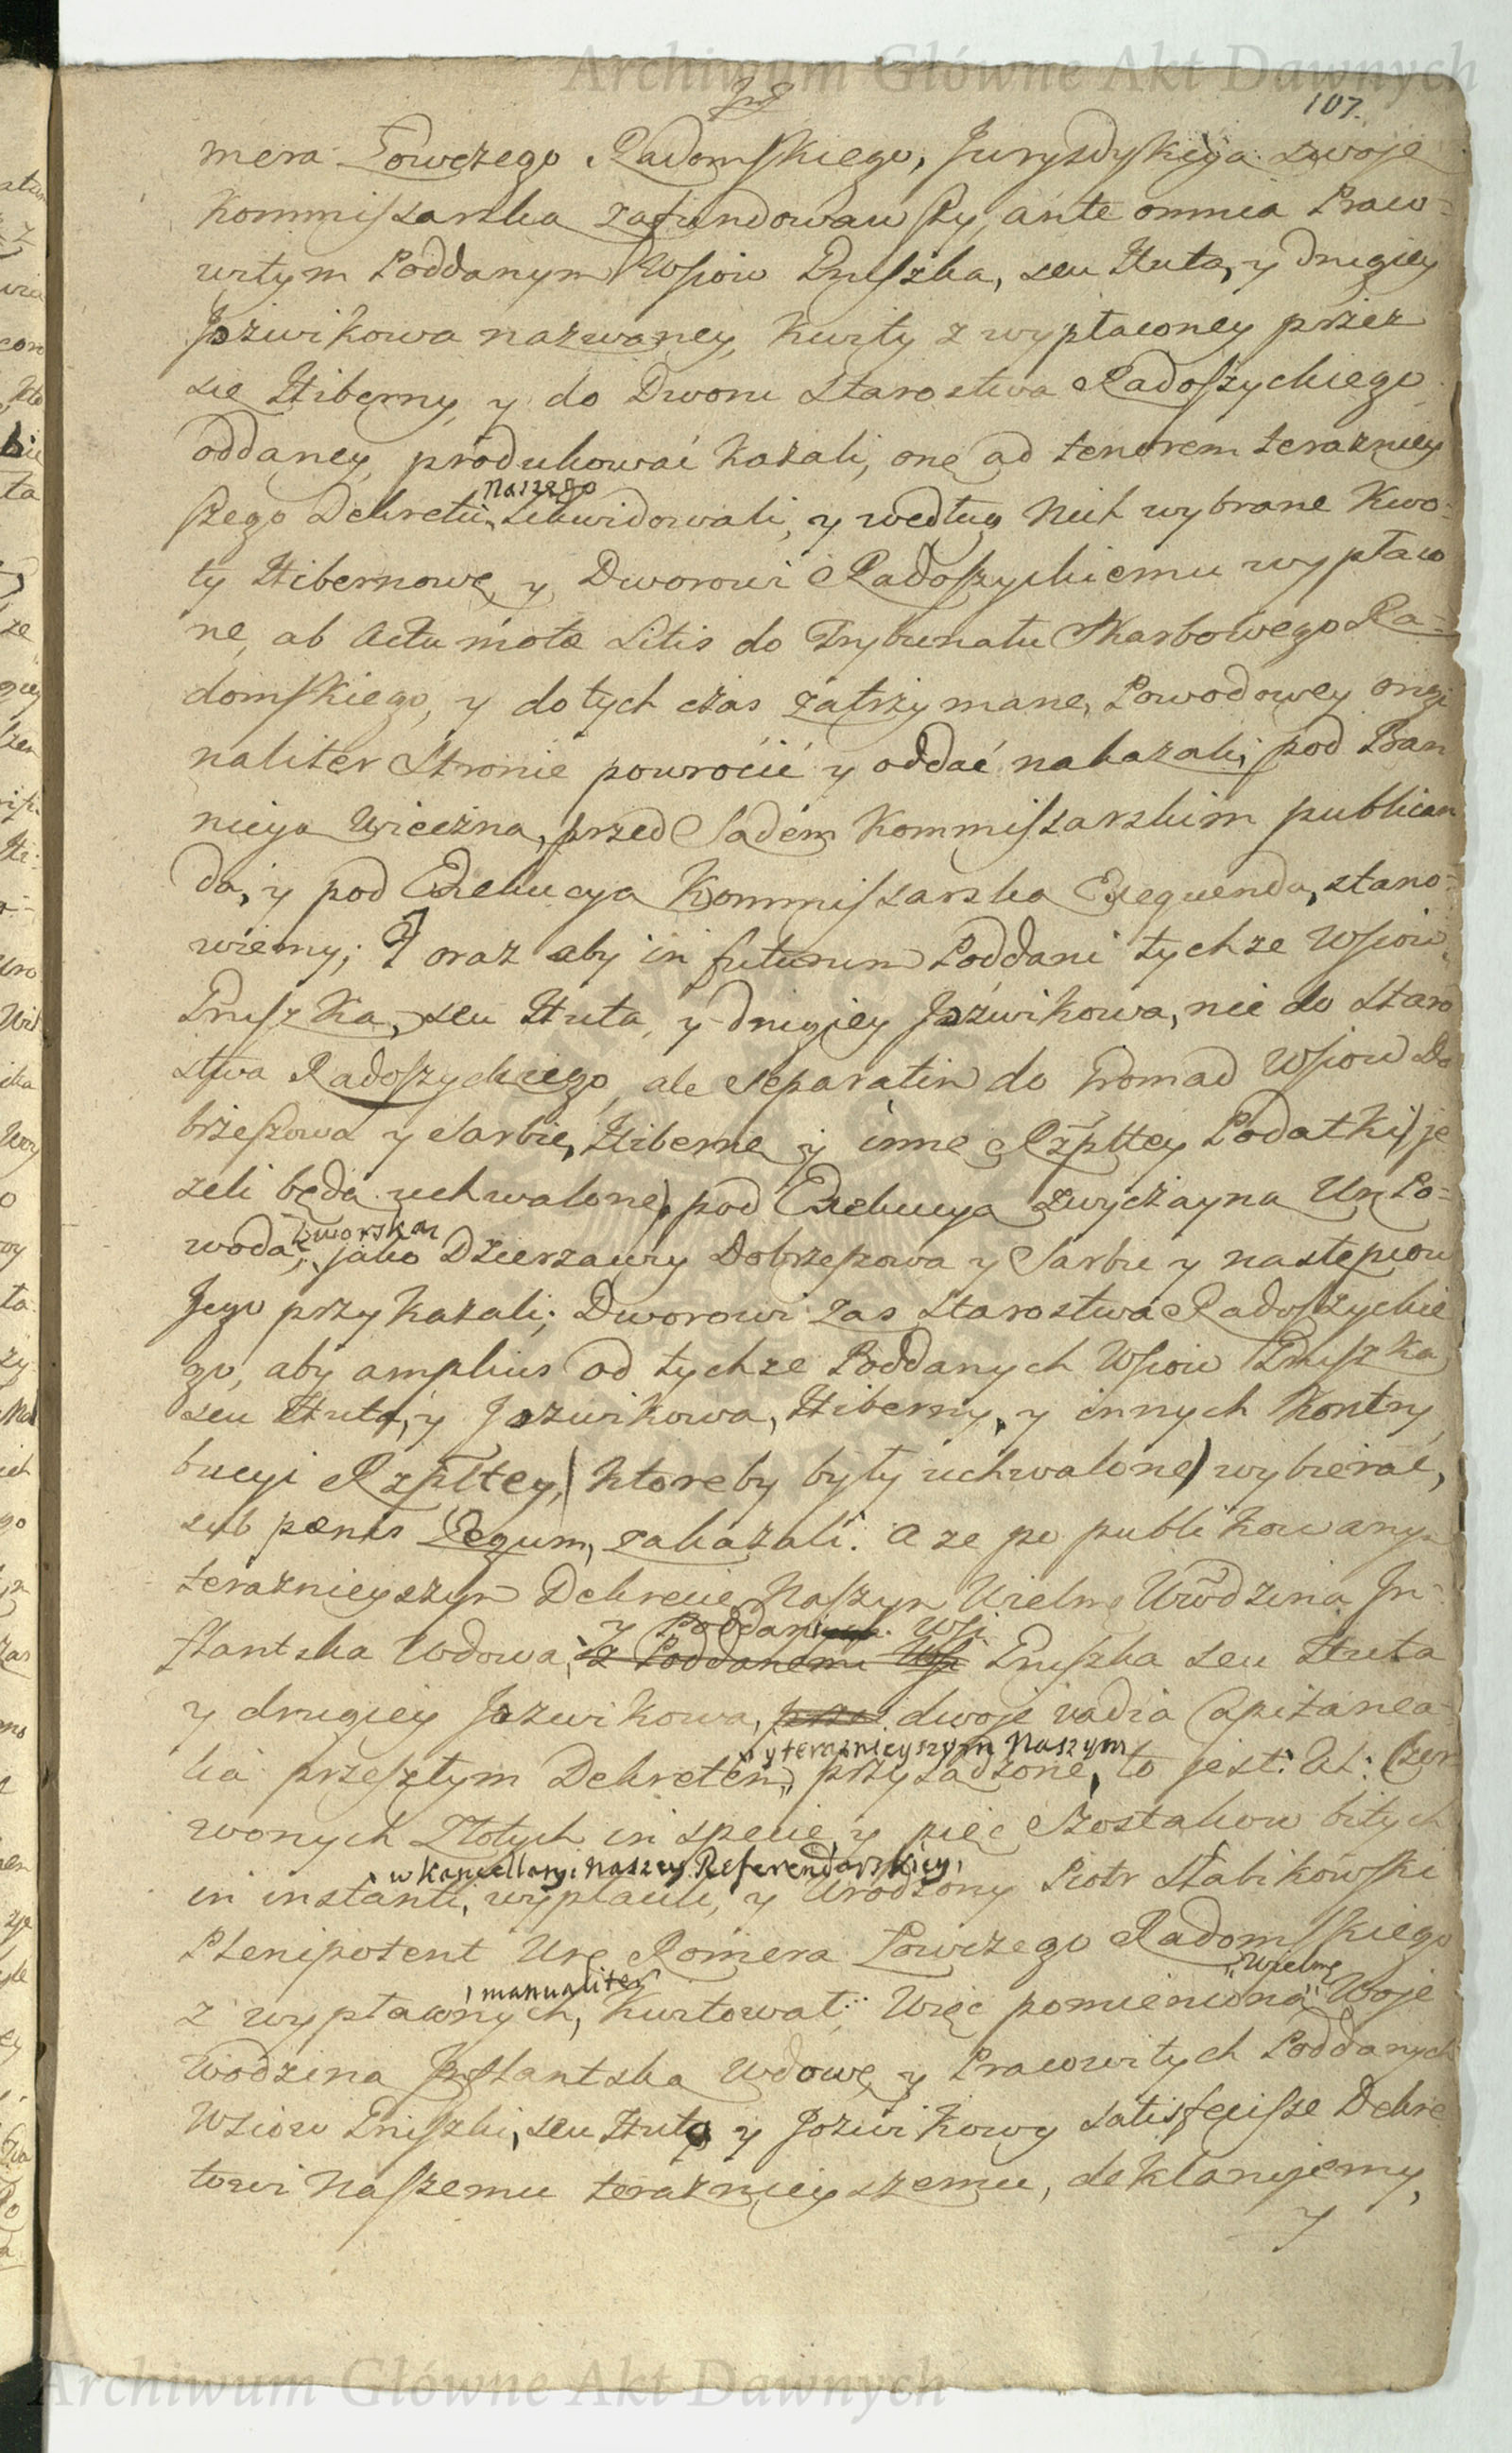 Archiwum Główne Akt Dawnych
107.
mera Łowczego Radomskiego, Jurysdykcyą swoję
Kommissarską zafundowawszy, ante omnia Praco-
witym Poddanym Wsiow Pruszka, seu Huta, y drugiey
Jozwikowa nazwaney, kwity z wypłaconey przez
się Hiberny, y do Dworu Starostwa Radoszyckiego
oddaney, produkować kazali, one ad tenorem terazniey
szego Dekretu naszego Likwidowali, y według nich wybrane kwo-
ty Hibernowe, y Dworowi Radoszyckiemu wypłaco
ne, ab Actu motæ Litis do Trybunału Skarbowego Ra-
domskiego, y do tych czas zatrzymane, Powodowey orygi
naliter Stronie powrócić y oddać nakazali, pod Ban
nicyą Wieczną, przed Sądem Kommissarskim publican
dą, y pod Exekucyą Kommissarską Exequendą, stano-
wiemy; I oraz aby in futurum Poddani tychze Wsiow
Pruszka, seu Huta, y drugiey Jozwikowa, nie do Staro
stwa Radoszyckiego, ale separatim do Gromad Wsiow Do
brzeszowa y Sarbie, Hibernę y inne Rzpltey Podatki) je
zeli będą uchwalone) pod Exekucyą zwyczayną Ur. Po-
woda, Dworską jako Dzierzawcy Dobrzeszowa y Sarbie y następcow
Jego przykazali; Dworowi zas Starostwa Radoszyckie
go, aby amplius od tychze Poddanych Wsiow Pruszka
seu Huta, y Jozwikowa, Hiberny, y innych Kontry
bucyi Rzpltey, (ktoreby były uchwalone) wybierać,
sub pœnis Legum, zakazali. A ze po publikowanym
teraznieyszym Dekrecie Naszym Wielmo Wwodzina In-
flantska Wdowa, y Poddani Wsi
z Poddanemi Wsi Pruszka seu Huta
y drugiey Jozwikowa, dwoje vadia Capitanea-
lia przeszłym Dekretem y teraznieyszym Naszym przysądzone, to jest: Czer
wonych Złotych in specie y pięć Szostakow bitych
in instanti, w Kancellaryi naszey Referendarskiey, wypłacili, y Urodzony Piotr Słabikowski
Plenipotent Ure Romera Łowczego Radomskiego
z wypłaconych, manualiter kwitował; Więc pomienioną Wielmę Woje
wodzinę Inflantską Wdowę y Pracowitych Poddanych
Wsiow Pruszki, seu Huty y Jozwikowy satisfecisse Dekre
towi Naszemu teraznieyszemu, deklarujemy,
y
Archiwum Główne Akt Dawnych